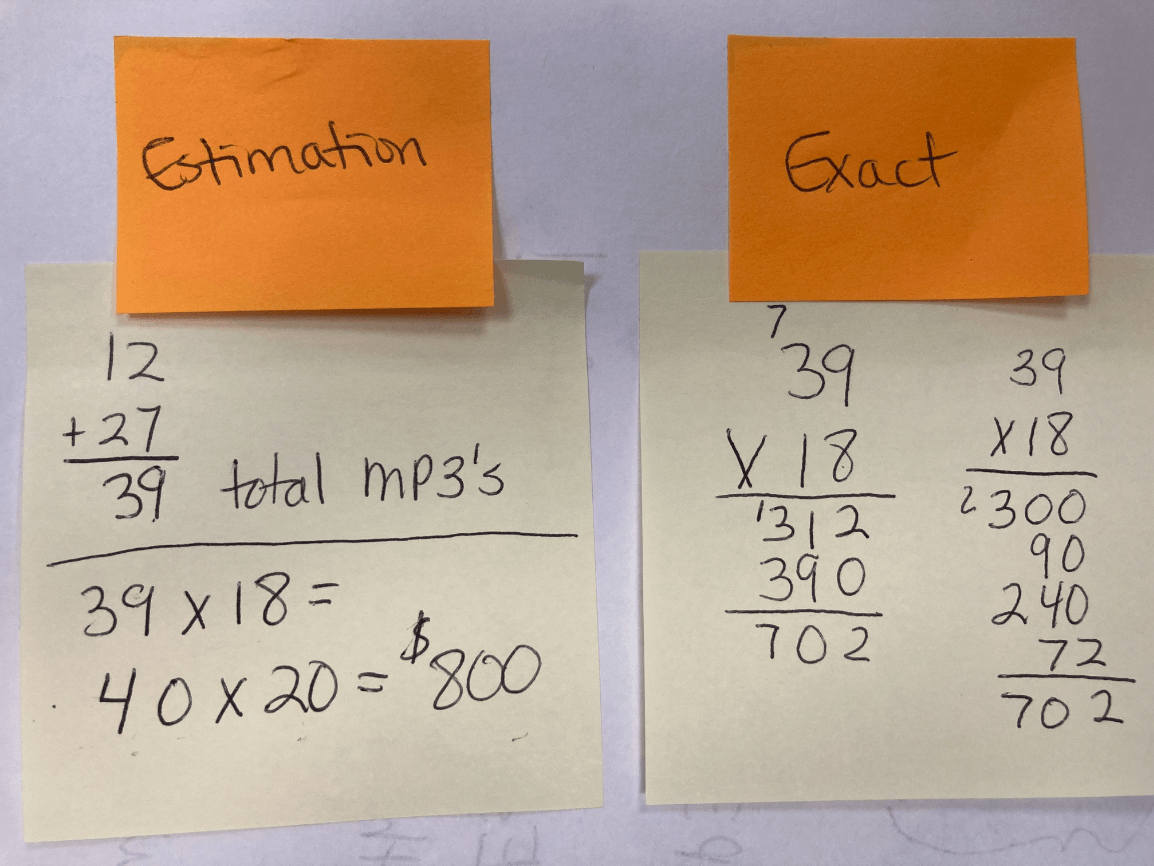 Estimation
12
+27
39 total mp3's
39 x 18 =
40 x 20 = $800
Exact
7
39
x 18
1312
390
702
39
x18
2300
90
240
72
702